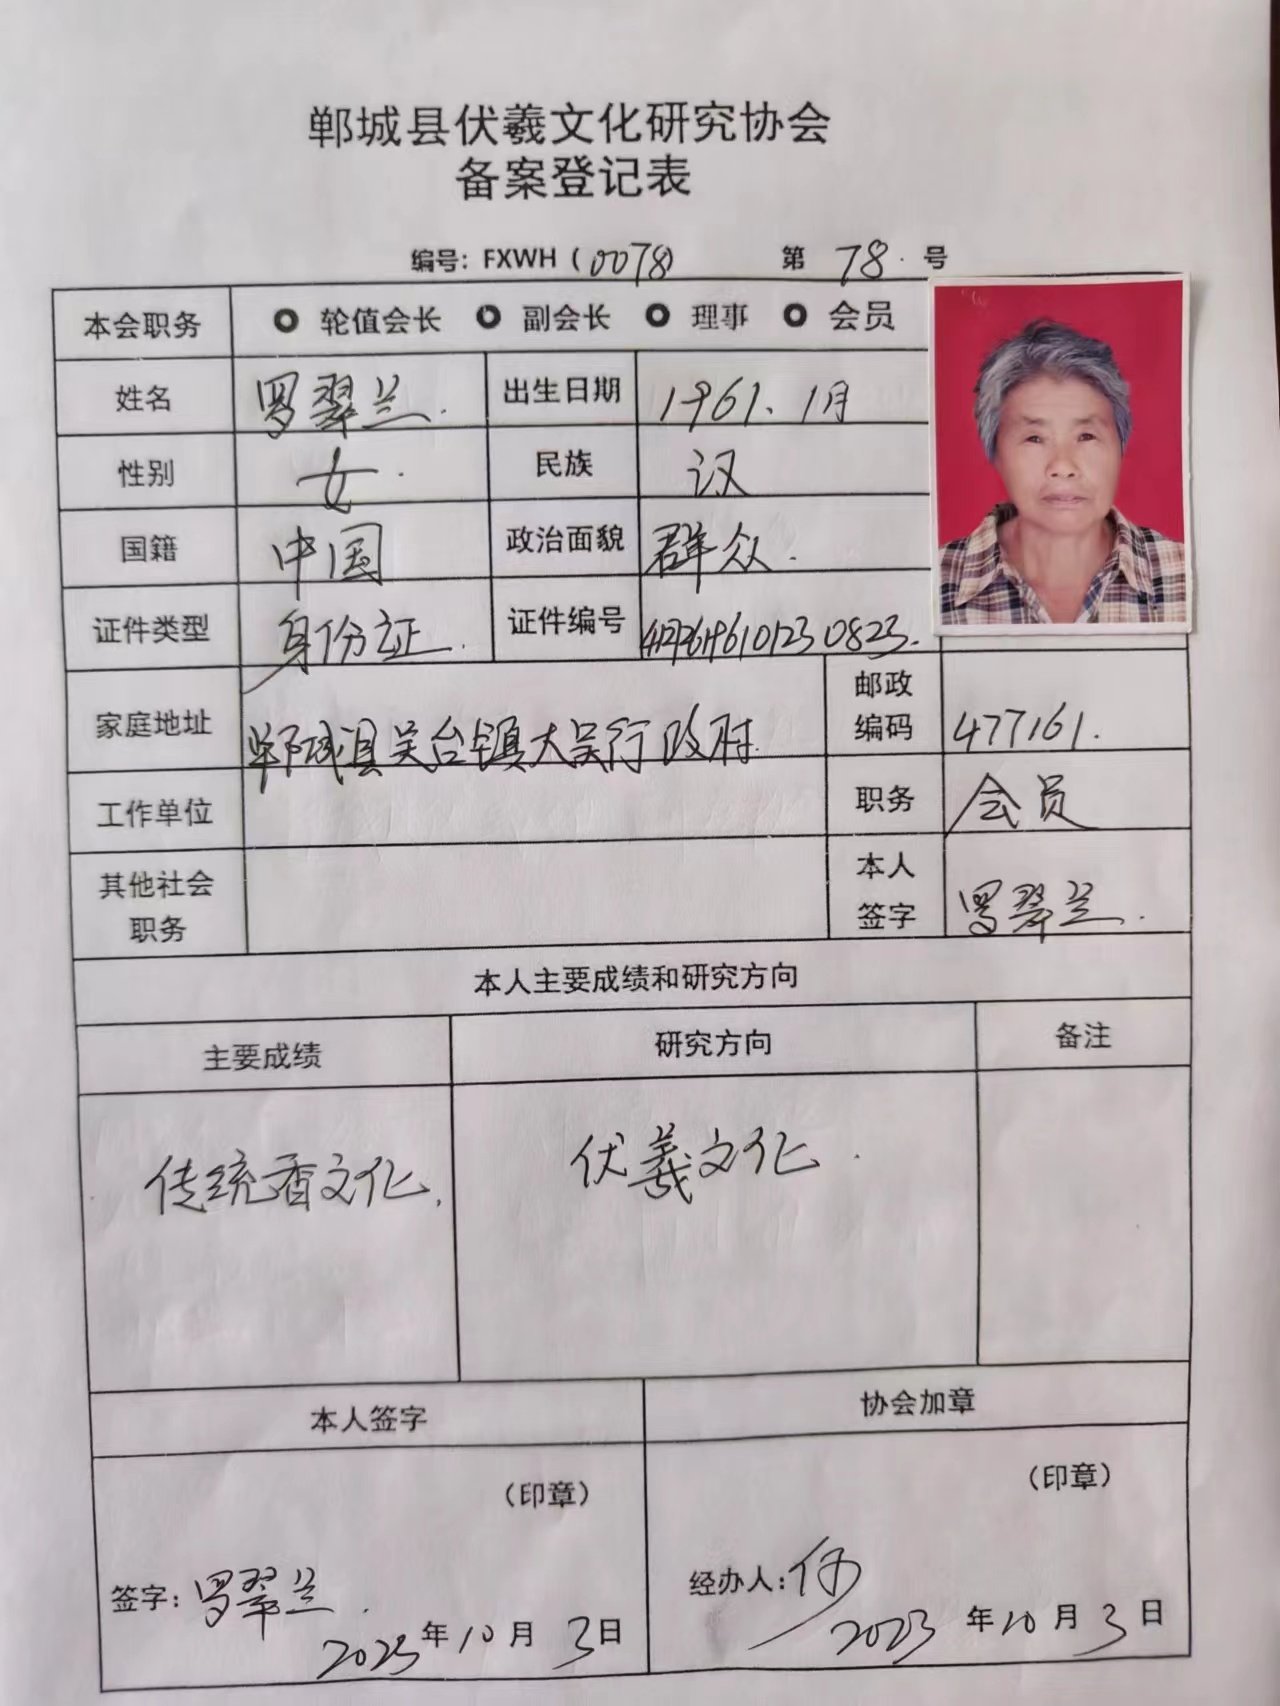 郸城县伏羲文化研究协会
备案登记表
编号: FXWH (0078) 第 78. 号
本会职务 轮值会长 副会长 理事 会员
姓名 罗翠兰. 出生日期 1961. 1月
性别 女. 民族 汉
国籍 中国 政治面貌 群众.
证件类型 身份证. 证件编号
家庭地址 郸城县吴台镇大吴行政府 邮政编码 477161.
工作单位 职务 会员
其他社会职务 本人签字 罗翠兰.
本人主要成绩和研究方向
主要成绩 研究方向 备注
传统香文化, 伏羲文化.
本人签字 协会加章
(印章) (印章)
签字: 罗翠兰. 经办人:
2023年10月3日 2023年10月3日